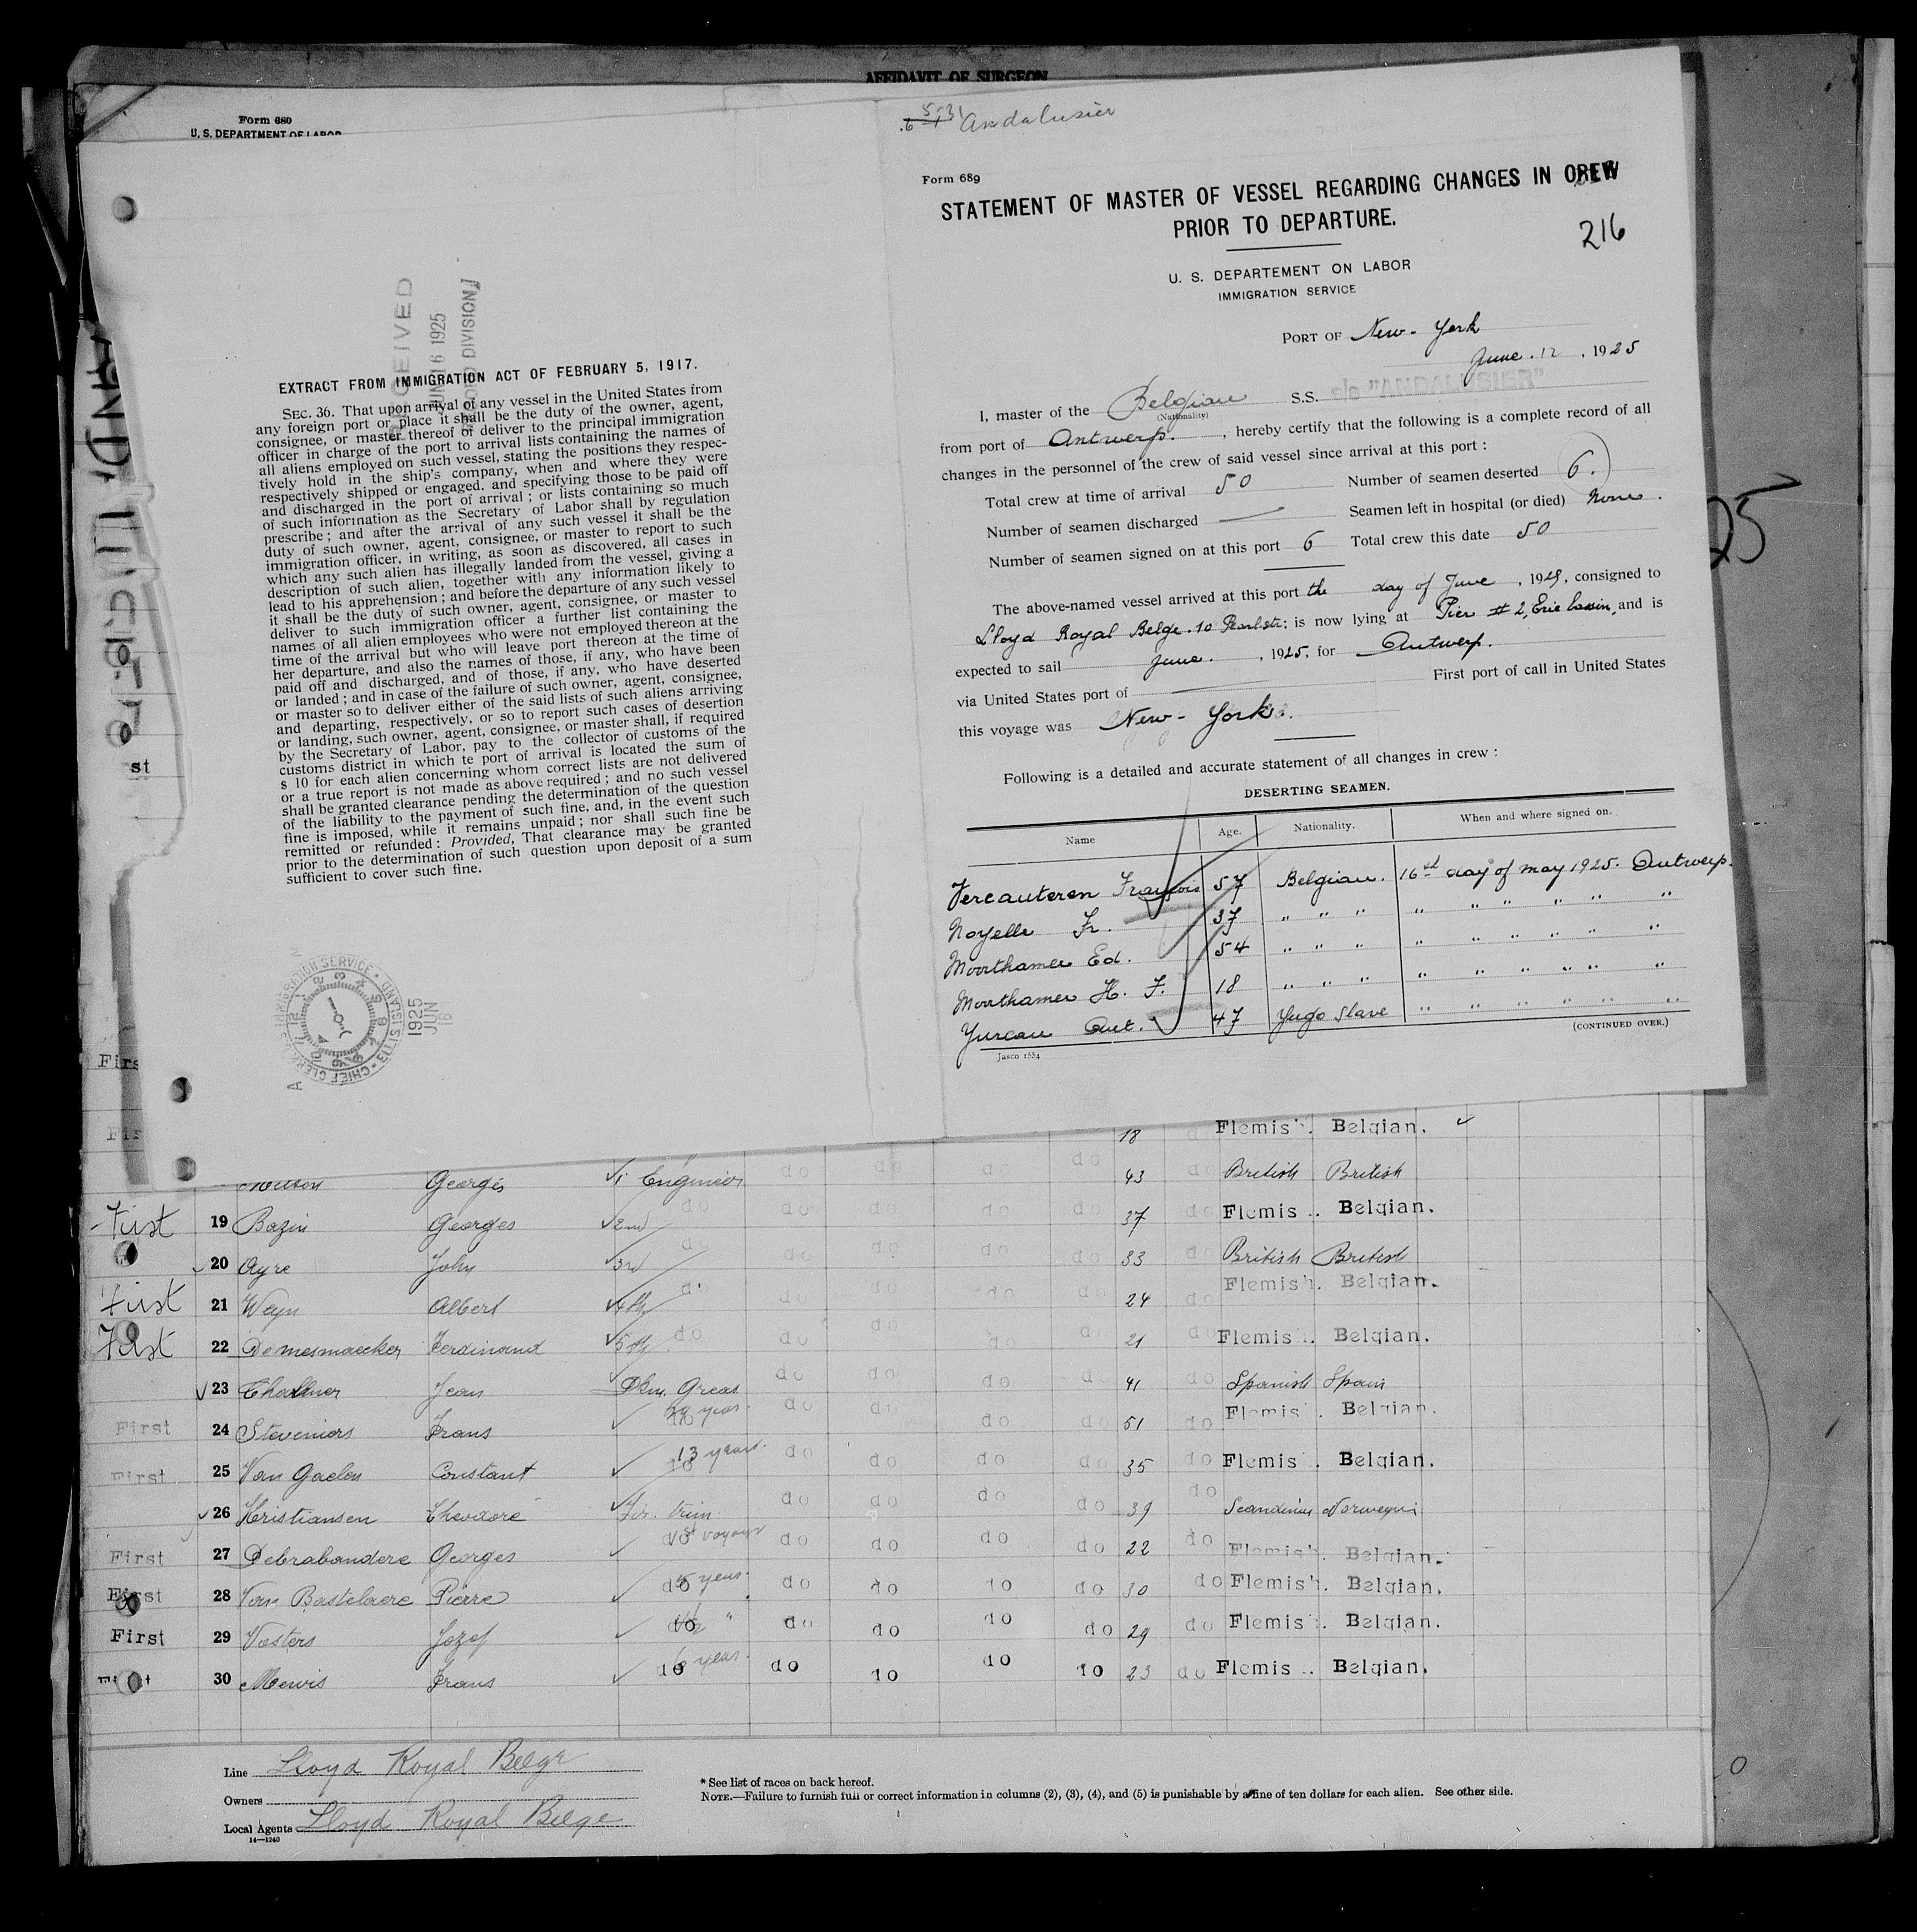 AFFIDAVIT OF SURGEON
Form 680
U. S. DEPARTMENT OF LABOR
RECEIVED
JUN 16 1925
DIVISION
EXTRACT FROM IMMIGRATION ACT OF FEBRUARY 5, 1917.
SEC. 36. That upon arrival of any vessel in the United States from
any foreign port or place it shall be the duty of the owner, agent,
consignee, or master thereof to deliver to the principal immigration
officer in charge of the port to arrival lists containing the names of
all aliens employed on such vessel, stating the positions they respec-
tively hold in the ship's company, when and where they were
respectively shipped or engaged. and specifying those to be paid off
and discharged in the port of arrival ; or lists containing so much
of such information as the Secretary of Labor shall by regulation
prescribe ; and after the arrival of any such vessel it shall be the
duty of such owner, agent, consignee, or master to report to such
immigration officer, in writing, as soon as discovered, all cases in
which any such alien has illegally landed from the vessel, giving a
description of such alien, together with any information likely to
lead to his apprehension ; and before the departure of any such vessel
it shall be the duty of such owner, agent, consignee, or master to
deliver to such immigration officer a further list containing the
names of all alien employees who were not employed thereon at the
time of the arrival but who will leave port thereon at the time of
her departure, and also the names of those, if any, who have been
paid off and discharged, and of those, if any, who have deserted
or landed ; and in case of the failure of such owner, agent, consignee,
or master so to deliver either of the said lists of such aliens arriving
and departing, respectively, or so to report such cases of desertion
or landing, such owner, agent, consignee, or master shall, if required
by the Secretary of Labor, pay to the collector of customs of the
customs district in which te port of arrival is located the sum of
$ 10 for each alien concerning whom correct lists are not delivered
or a true report is not made as above required ; and no such vessel
shall be granted clearance pending the determination of the question
of the liability to the payment of such fine, and, in the event such
fine is imposed, while it remains unpaid ; nor shall such fine be
remitted or refunded : Provided, That clearance may be granted
prior to the determination of such question upon deposit of a sum
sufficient to cover such fine.
IMMIGRATION SERVICE
CHIEF CLERK
1925
JUN
16
Andalusier
Form 689
STATEMENT OF MASTER OF VESSEL REGARDING CHANGES IN CREW
PRIOR TO DEPARTURE.
216
U. S. DEPARTEMENT ON LABOR
IMMIGRATION SERVICE
PORT OF New-York
June. 12 , 1925
I, master of the Belgian S.S. s/s "ANDALUSIER"
(Nationality)
from port of Antwerp. , hereby certify that the following is a complete record of all
changes in the personnel of the crew of said vessel since arrival at this port :
Total crew at time of arrival 50 Number of seamen deserted 6.
Number of seamen discharged — Seamen left in hospital (or died) None.
Number of seamen signed on at this port 6 Total crew this date 50
The above-named vessel arrived at this port the day of June , 1925, consigned to
Lloyd Royal Belge. 10 Pearl str: is now lying at Pier # 2, Erie bassin, and is
expected to sail June. , 1925, for Antwerp.
via United States port of — First port of call in United States
this voyage was New-York.
Following is a detailed and accurate statement of all changes in crew :
DESERTING SEAMEN.
Name Age. Nationality. When and where signed on.
Vercauteren François 57 Belgian. 16st day of may 1925. Antwerp.
Noyelle Fr. 37 " " " " " " " " "
Moorthamer Ed. 54 " " " " " " " " "
Moorthamer H. F. 18 " " " " " " " " "
Jurcau Ant. 47 Yugo Slave " " " " " "
(CONTINUED OVER.)
Jasco 1554
25
st
First
First 18 Flemish. Belgian.
Georges 1 Engineer do do do do 43 do British British
First 19 Bazin Georges 2nd do do do do do 37 do Flemis . Belgian.
20 Ayre John 3rd do do do do do 33 do British British
First 21 Weyn Albert 4th do do do do 24 do Flemish. Belgian.
First 22 Demesmaecker Ferdinand 5th do do do do do 21 do Flemis . Belgian.
23 Jean Dkm. Greas do do do do 41 do Spanish Spain
First 24 Steveniers Frans do years. do do do do 51 do Flemis . Belgian.
First 25 Van Gaelen Constant do 13 years. do do do do 35 do Flemis . Belgian.
26 Kristiansen Theodore Fir. trim. do do do do 39 do Norwegin
First 27 Debrabandere Georges do voyage do do do do 22 do Flemish. Belgian.
First 28 Van Bastelaere Pierre do years. do do do do 30 do Flemish. Belgian.
First 29 Vosters Jozef do " do do do do 29 do Flemish. Belgian.
First 30 Mewis Frans do 6 years. do do do do 23 do Flemis . Belgian.
Line Lloyd Royal Belge
Owners
Local Agents Lloyd Royal Belge
14—1240
* See list of races on back hereof.
NOTE.—Failure to furnish full or correct information in columns (2), (3), (4), and (5) is punishable by a fine of ten dollars for each alien. See other side.